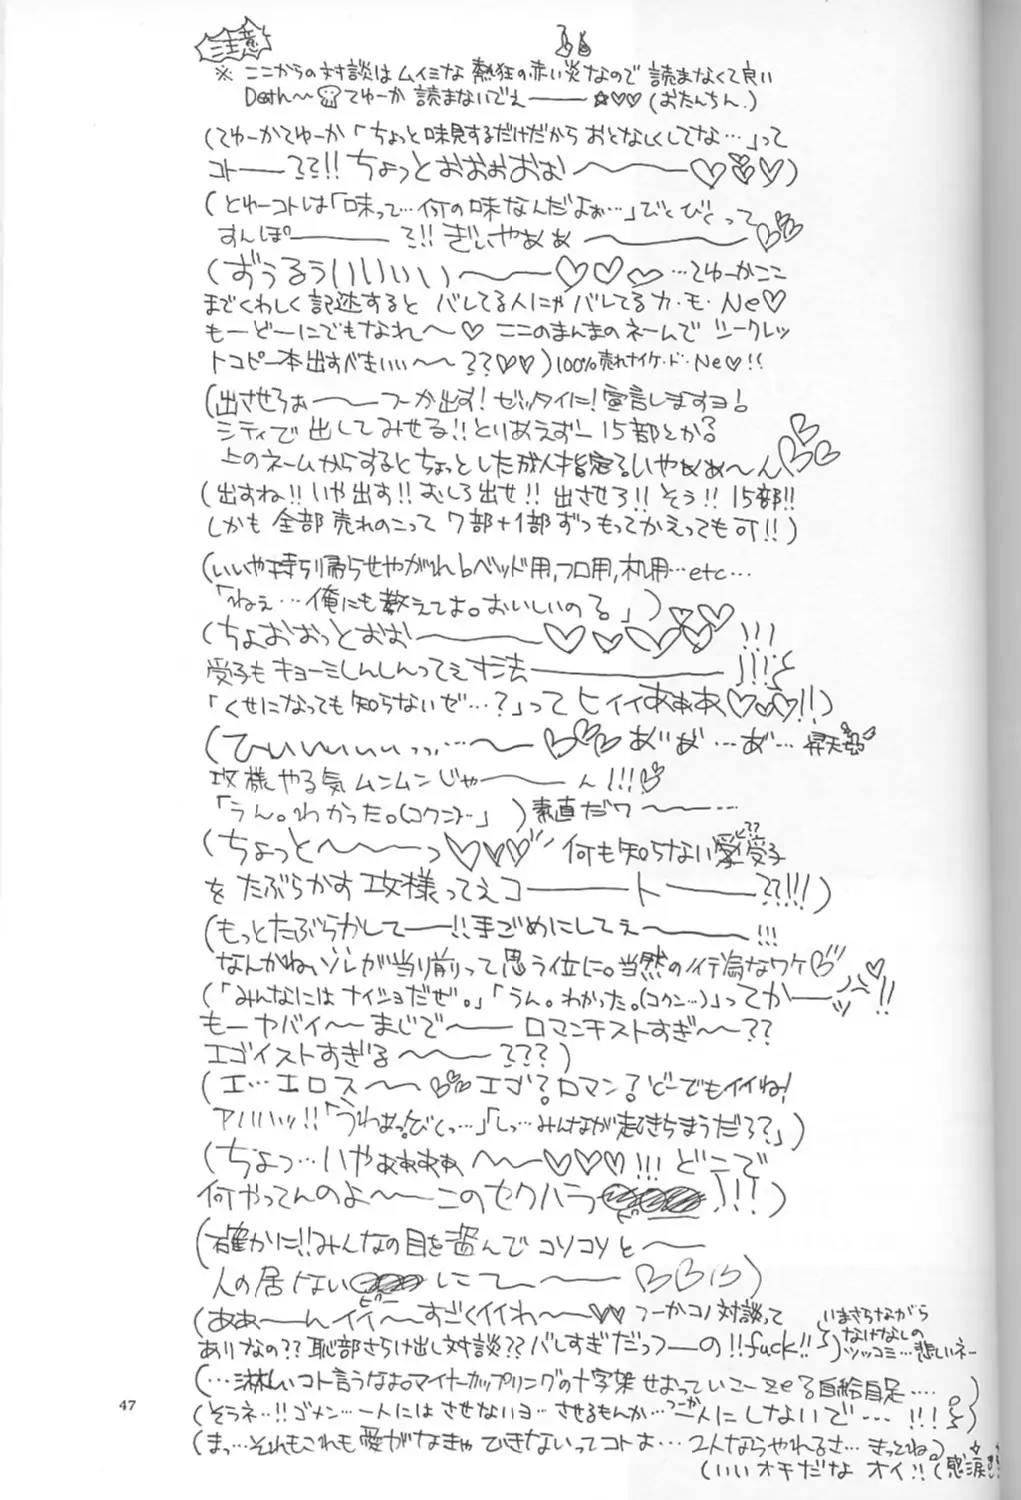 注意
※ ここからの対談はムイミな熱狂の赤い炎なので 読まなくて良い
Death〜 てゆーか 読まないでえ――― ☆♡♡ (おたんちん。)
(てゆーかてゆーか「ちょっと味見するだけだから おとなしくしてな…」って
コト――??!! ちょっとおおぉおお 〜〜―― ♡♡♡)
(とゆーコトは「味って…何の味なんだよぉ…」びくびくって
すんぽ――― ?!! ぎぃやぁぁ 〜――― ♡♡
(ずぅるぅいいいぃい〜〜―― ♡♡♡ …てゆーかここ
までくわしく記述すると バレてる人にゃバレてるカ・モ・Ne♡
もーどーにでもなれ〜♡ ここのまんまのネームで シークレッ
トコピー本出すべきいぃ〜〜 ??♡♡) 100%売れナイケ・ド・Ne♡!!
(出させろぉ―― つーか出す! ゼッタイに! 宣言しますヨ!
シティで出してみせる!! とりあえずー15部とか?
上のネームからするとちょっとした成人指定?いやぁぁぁ〜ん♡♡♡
(出すね!! いや出す!! むしろ出せ!! 出させろ!! そう!! 15部!!
しかも 全部売れのこって 7部+1部ずつもってかえっても可!!)
(いいや持ち帰らせやがれbベッド用,フロ用,机用…etc…
「ねぇ…俺にも教えてよ。おいしいの?」) ♡♡
(ちょおおっとおお――― ♡♡♡♡ !!!
受子もキョーミしんしんってえ寸法――― !!!
「くせになっても知らないぜ…?」って ヒィィあぁぁあ♡♡♡!!)
(てぃぃぃぃぃっっ…〜― ♡♡♡ あ゛あ゛…あ゛… 昇天
攻様やる気ムンムンじゃ―――ん!!!♡
「うん。わかった。(コクン)…」 ) 素直だワ〜――…
(ちょっと〜〜〜っ♡♡♡ 何も知らない愛受子
をたぶらかす攻様ってえコ――ト――??!!!)
(もっとたぶらかして――!! 手ごめにしてえ〜――〜 !!!
なんかねぃソレが当り前って思う位に。当然の行為なワケ♡
(「みんなにはナイショだぜ。」「うん。わかった。(コクン…)」ってか――ッ♡!!
もーヤバイ〜〜まじで〜〜― ロマンチストすぎ〜〜??
エゴイストすぎる〜〜― ???)
(エ…エロス〜〜 ♡♡ エゴ?ロマン?どーでもイイね!
アハハハッ!!「うわぁっ?びくっ…」「しっ…みんなが起きちまうだろ?」)
(ちょっ…いやぁぁぁぁぁ 〜〜― ♡♡♡!!! どこで
何やってんのよ〜― このセクハラ !!!)
(確かに!! みんなの目を盗んでコソコソと〜―
人の居ない にて〜〜― ♡♡♡)
(ああぁ〜んイイ〜〜すごくイイわ〜―♡♡ つーかコノ対談って
ありなの?? 恥部さらけ出し対談?? バレすぎだっつーの!! fuck!!
いまさらながら
なけなしの
ツッコミ…悲しいネー
(…淋しいコト言うなよ。マイナーカップリングの十字架せおっていこーze?自給自足….)
(そうネ…!! ゴメン…一人にはさせないヨ…させるもんか…つーか一人にしないで… !!!)
(まっ…それもこれも愛がなきゃできないってコトよ…2人ならやれるさ…きってね)
(いいオキだな オイ!! (感涙
47